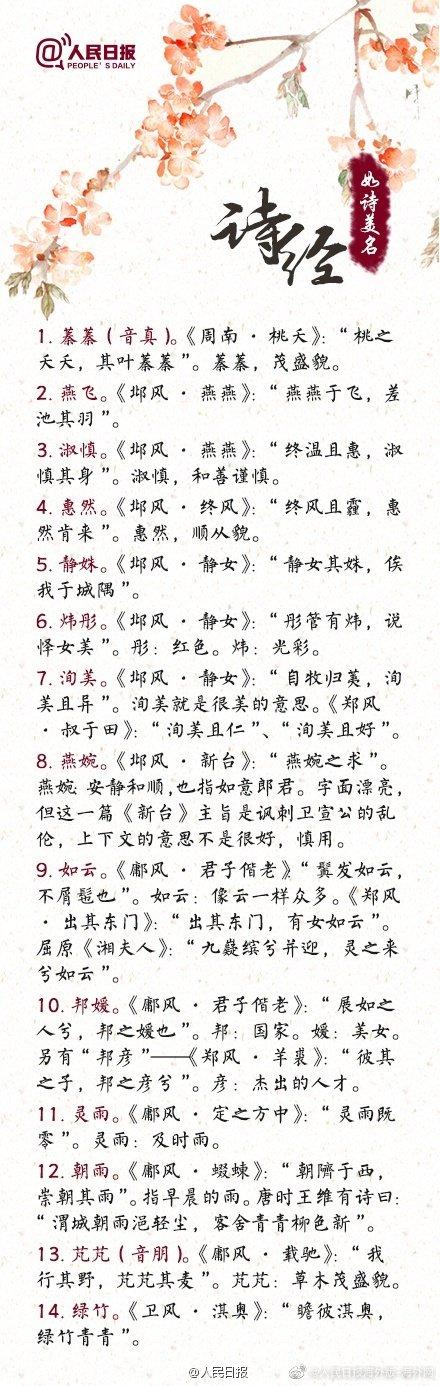 @人民日报
PEOPLE'S DAILY
诗经
如诗美名
1. 蓁蓁（音真）。《周南·桃夭》：“桃之
夭夭，其叶蓁蓁”。蓁蓁，茂盛貌。
2. 燕飞。《邶风·燕燕》：“燕燕于飞，差
池其羽”。
3. 淑慎。《邶风·燕燕》：“终温且惠，淑
慎其身”。淑慎，和善谨慎。
4. 惠然。《邶风·终风》：“终风且霾，惠
然肯来”。惠然，顺从貌。
5. 静姝。《邶风·静女》：“静女其姝，俟
我于城隅”。
6. 炜彤。《邶风·静女》：“彤管有炜，说
怿女美”。彤：红色。炜：光彩。
7. 洵美。《邶风·静女》：“自牧归荑，洵
美且异”。洵美就是很美的意思。《郑风
·叔于田》：“洵美且仁”、“洵美且好”。
8. 燕婉。《邶风·新台》：“燕婉之求”。
燕婉：安静和顺，也指如意郎君。字面漂亮，
但这一篇《新台》主旨是讽刺卫宣公的乱
伦，上下文的意思不是很好，慎用。
9. 如云。《鄘风·君子偕老》：“鬒发如云，
不屑髢也”。如云：像云一样众多。《郑风
·出其东门》：“出其东门，有女如云”。
屈原《湘夫人》：“九嶷缤兮并迎，灵之来
兮如云”。
10. 邦媛。《鄘风·君子偕老》：“展如之
人兮，邦之媛也”。邦：国家。媛：美女。
另有“邦彦”——《郑风·羊裘》：“彼其
之子，邦之彦兮”。彦：杰出的人才。
11. 灵雨。《鄘风·定之方中》：“灵雨既
零”。灵雨：及时雨。
12. 朝雨。《鄘风·蝃蝀》：“朝隮于西，
崇朝其雨”。指早晨的雨。唐时王维有诗曰：
“渭城朝雨浥轻尘，客舍青青柳色新”。
13. 芃芃（音朋）。《鄘风·载驰》：“我
行其野，芃芃其麦”。芃芃：草木茂盛貌。
14. 绿竹。《卫风·淇奥》：“瞻彼淇奥，
绿竹青青”。
@人民日报
@人民日报海外版-海外网